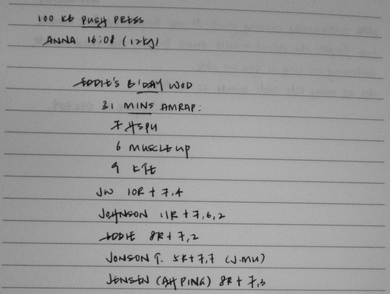 100 KG PUSH PRESS
ANNA 16:08 (12kg)
EDDIE'S B'DAY WOD
31 MINS AMRAP:
7 HSPU
6 MUSCLE UP
9 KTE
JW 10R + 7,4
JOHNSON 11R + 7,6,2
EDDIE 8R + 7,2
JONSON T. 5R + 7,7 (J.MU)
JENSEN (AH PING) 8R + 7,3